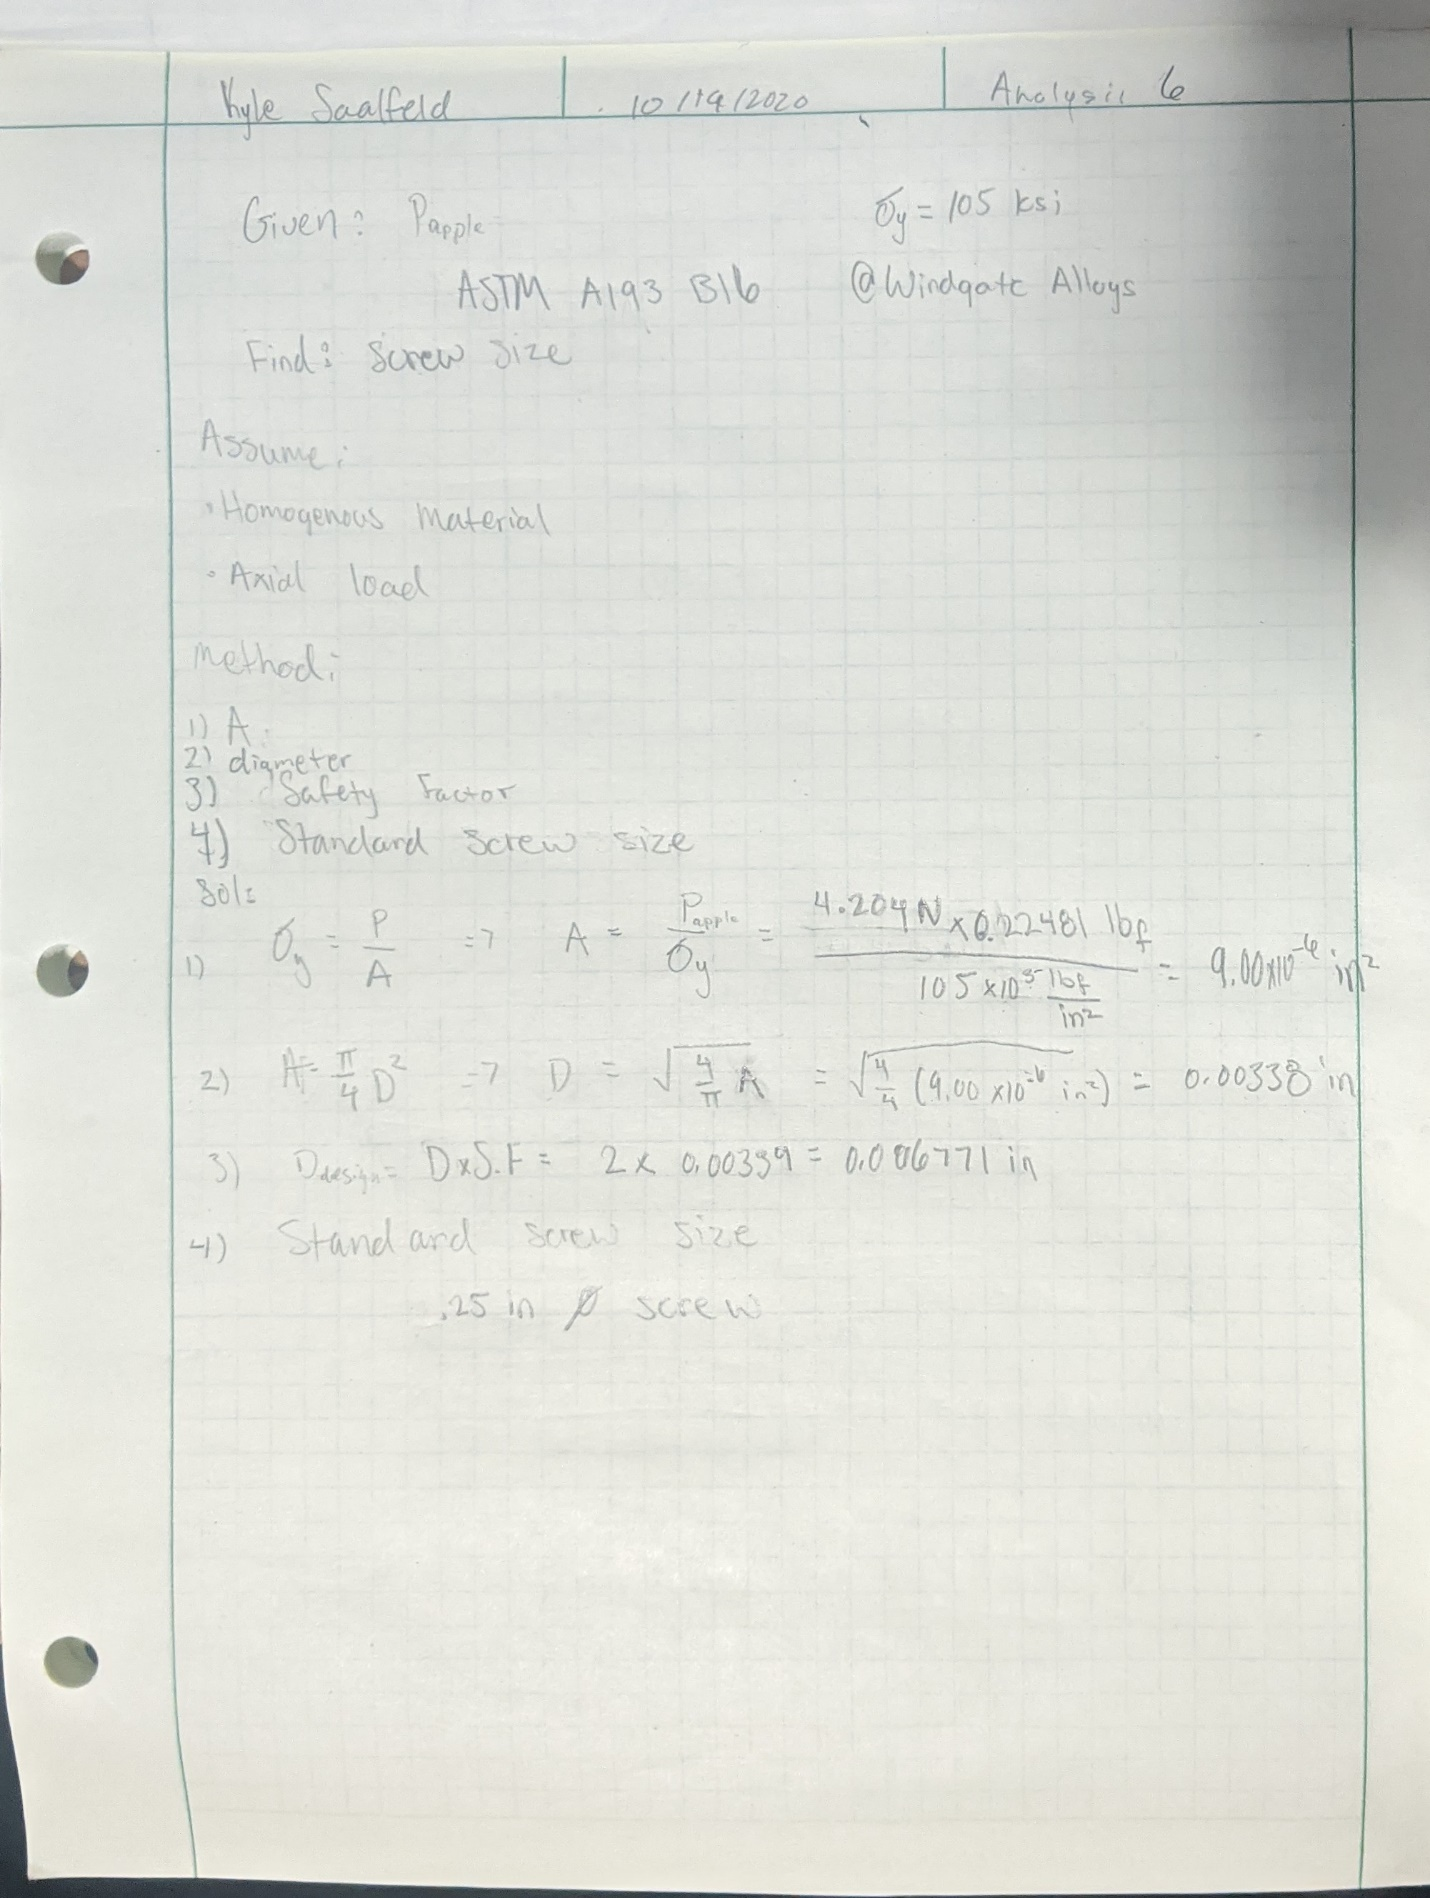 Kyle Saalfeld 10/19/2020 Analysis 6
Given: Papple σy = 105 ksi
ASTM A193 B16 @Windgate Alloys
Find: Screw Size
Assume:
• Homogenous Material
• Axial load
Method:
1) A
2) diameter
3) Safety Factor
4) Standard screw size
Sol:
1) σy = P/A => A = Papple/σy = 4.204N x 0.22481 lbf / 105 x10³ lbf/in² = 9.00x10⁻⁶ in²
2) A = π/4 D² => D = √(4/π A) = √(4/4 (9.00 x10⁻⁶ in²)) = 0.00338 in
3) Ddesign = D x S.F = 2 x 0.00339 = 0.006771 in
4) Standard screw size
.25 in ∅ screw